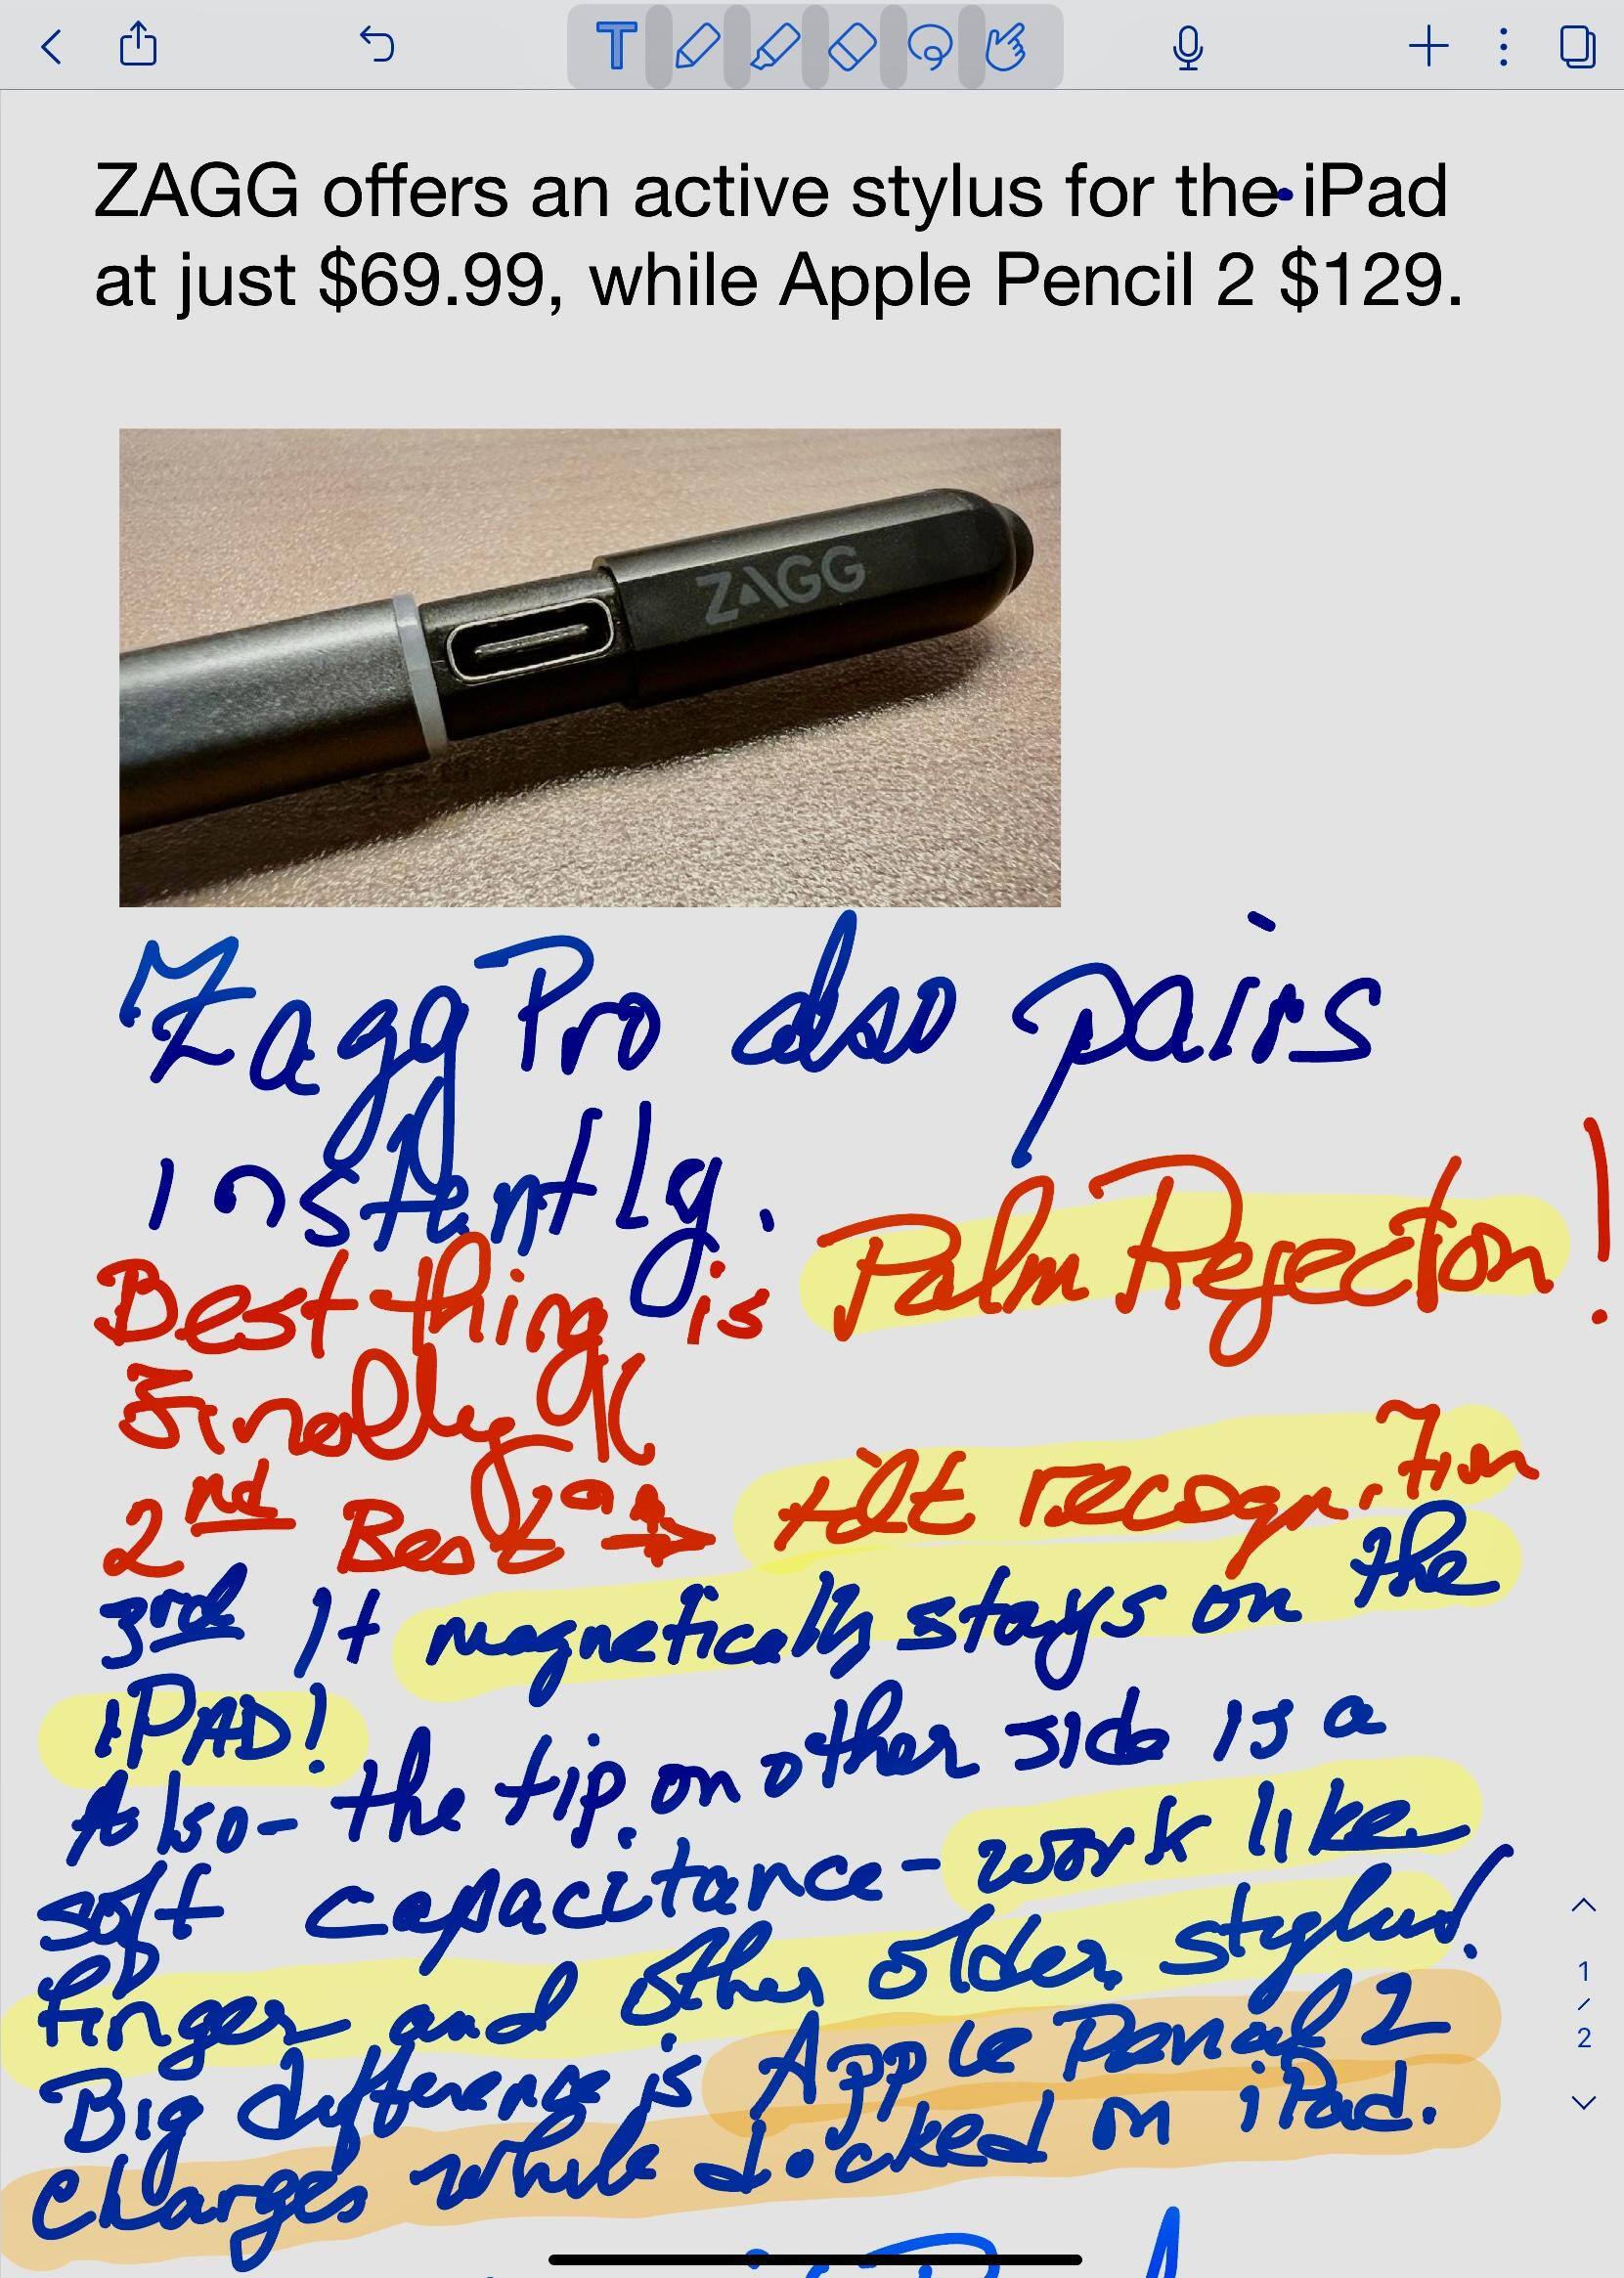 ZAGG offers an active stylus for the iPad
at just $69.99, while Apple Pencil 2 $129.
ZAGG
Zagg Pro also pairs
instently.
Best thing is Palm Rejecton!
Finally
2nd Best → tilt recognition
3rd It magnetically stays on the
iPAD!
Also- the tip on other side is a
soft capacitance - work like
finger and other older stylus!
Big difference is Apple Pencil 2
Charges while docked on iPad.
1
/
2